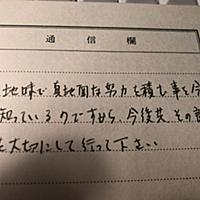 通信欄
地味で真地面な努力を積む事を今
知っているのですから、今後共その
大切にして行って下さい